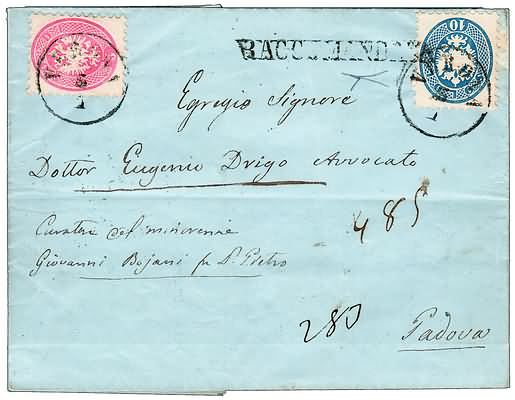 RACCOMANDATA
10
Egregio Signore
Dottor Eugenio Drigo Avvocato
Curatore del minorenne
Giovanni Bojani fu
485
283
Padova